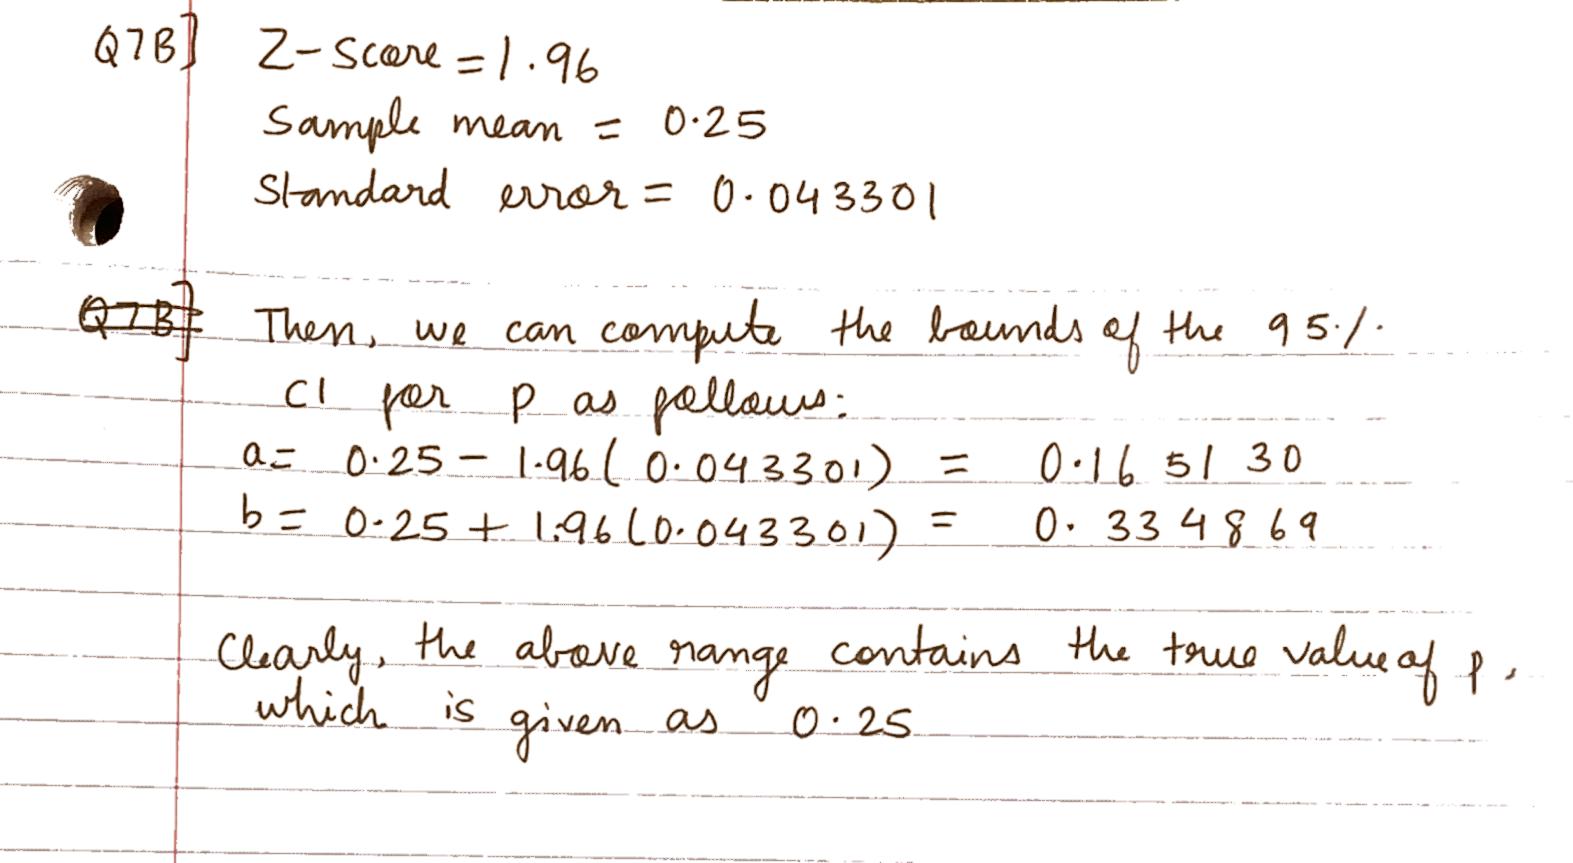 Q7B] Z-Score = 1.96
Sample mean = 0.25
Standard error = 0.043301
Q7B] Then, we can compute the bounds of the 95%
CI for p as follows:
a= 0.25 - 1.96(0.043301) = 0.165130
b= 0.25 + 1.96(0.043301) = 0.334869
Clearly, the above range contains the true value of p,
which is given as 0.25